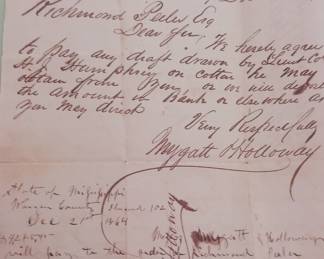 Richmond Peeler Esq
Dear Sir, We hereby agree
to pay any draft drawn by Lieut Co
H. Humphrey on Cotton he may
obtain from you or we will deposit
the amount in Bank or elsewhere as
you may direct
Very Respectfully
Mygatt & Holloway
State of Mississippi
Warren County Island 102
Dec 21st 1864
will pay to the order of Richmond Peeler
Holloway